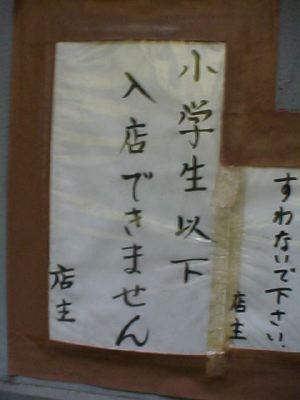 小学生以下
入店できません
店主
すわないで下さい
店主